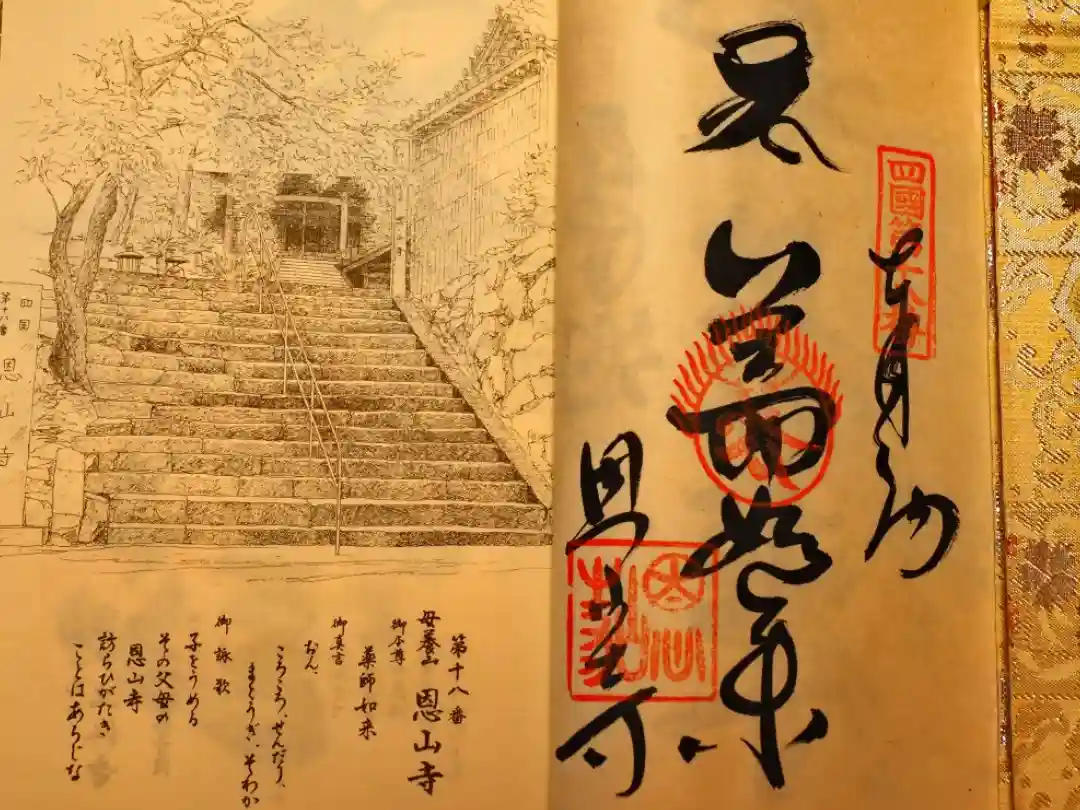 四國第十八番
恩山寺
四国
第十八番
恩山寺
第十八番
母養山 恩山寺
御本尊
薬師如来
御真言
おん、
ころころ、せんだり、
まとうぎ、そわか
御詠歌
子をうめる
その父母の
恩山寺
訪らひがたき
ことはあらじな